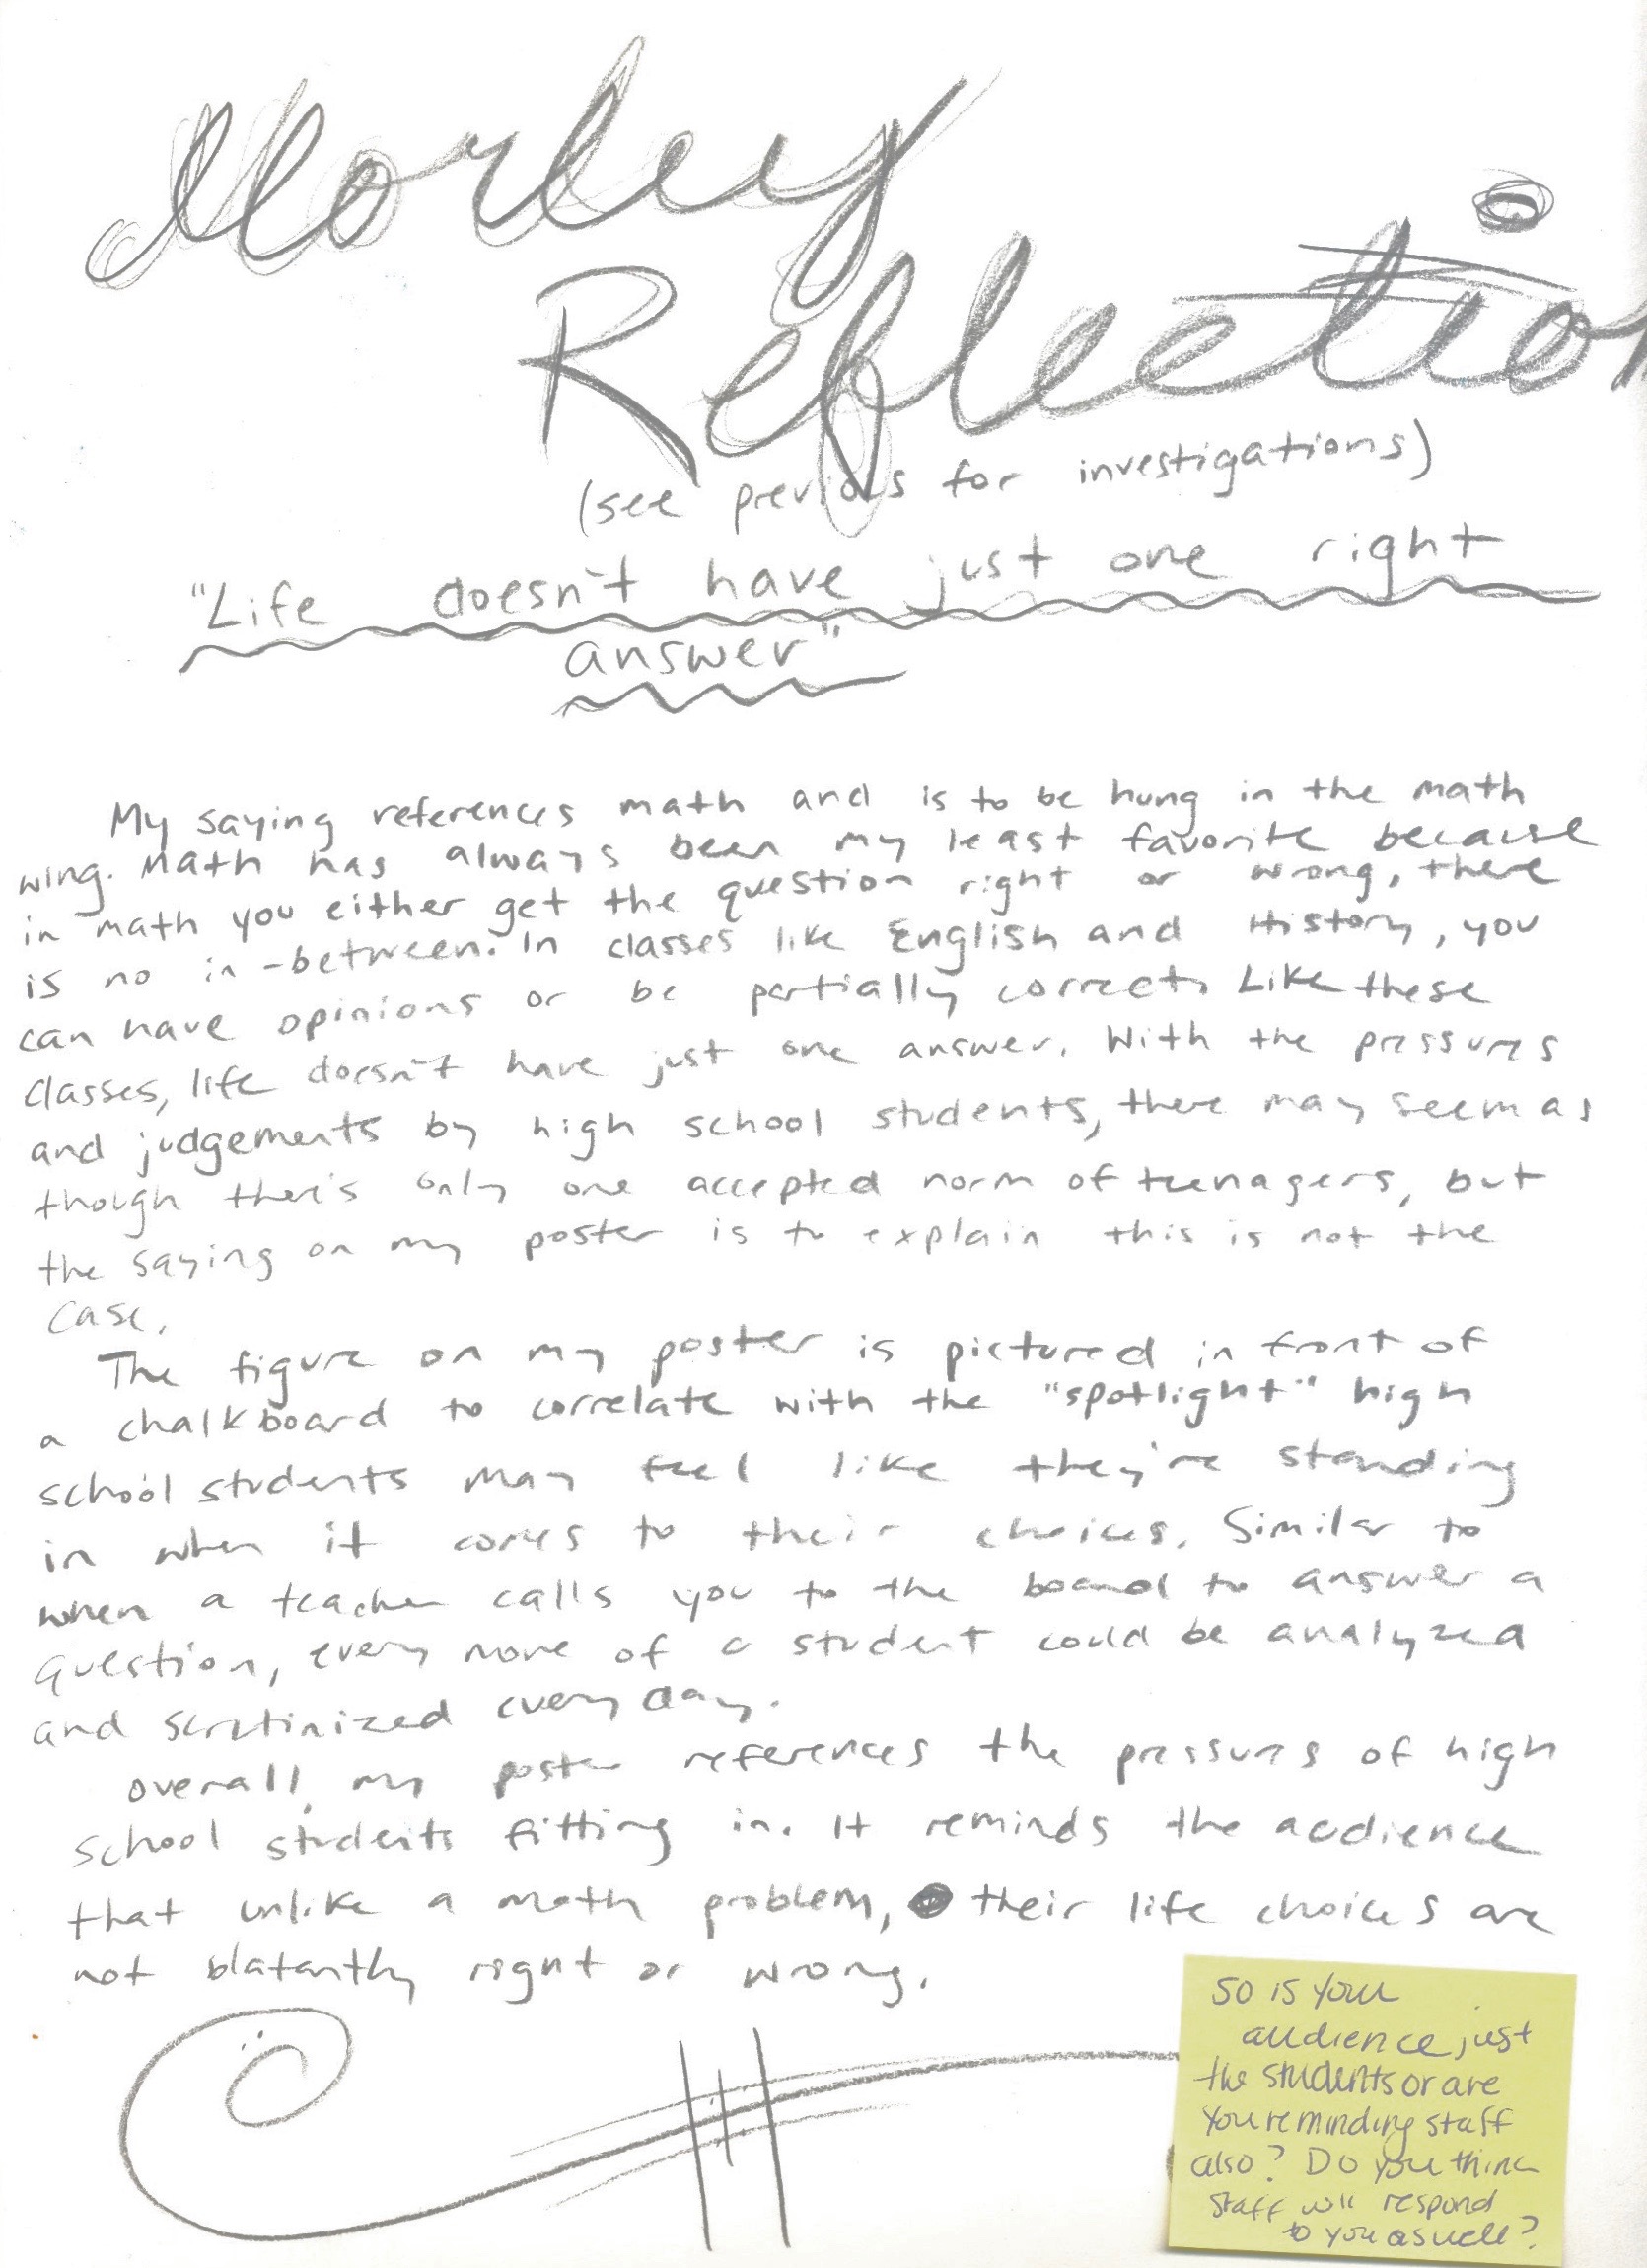 Morley
Reflection
(see previous for investigations)
"Life doesn't have just one right
answer"
My saying references math and is to be hung in the math
wing. Math has always been my least favorite because
in math you either get the question right or wrong, there
is no in-between. In classes like English and History, you
can have opinions or be partially correct. Like these
classes, life doesn't have just one answer. With the pressures
and judgements by high school students, there may seem as
though there's only one accepted norm of teenagers, but
the saying on my poster is to explain this is not the
case.
The figure on my poster is pictured in front of
a chalkboard to correlate with the "spotlight" high
school students may feel like they're standing
in when it comes to their choices. Similar to
when a teacher calls you to the board to answer a
question, every move of a student could be analyzed
and scrutinized every day.
Overall, my poster references the pressures of high
school students fitting in. It reminds the audience
that unlike a math problem, their life choices are
not blatantly right or wrong.
So is your
audience just
the students or are
you reminding staff
also? Do you think
staff will respond
to you as well?